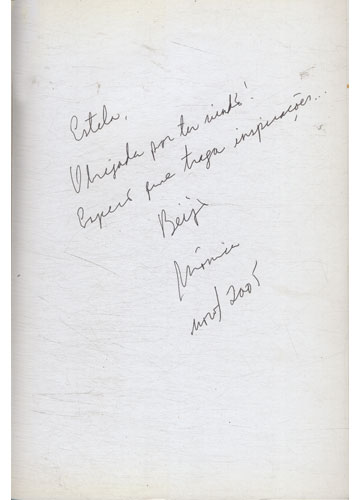 Estela,
Obrigada por ter vindo!
Espero que traga inspirações...
Beijo
Mônica
nov/2005